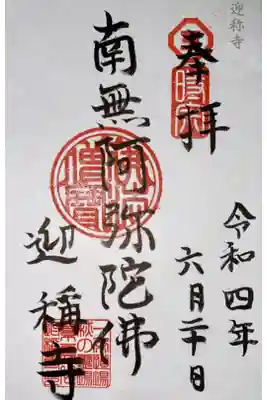 迎称寺
奉拝
令和四年
六月二十日
南無阿弥陀佛
迎稱寺